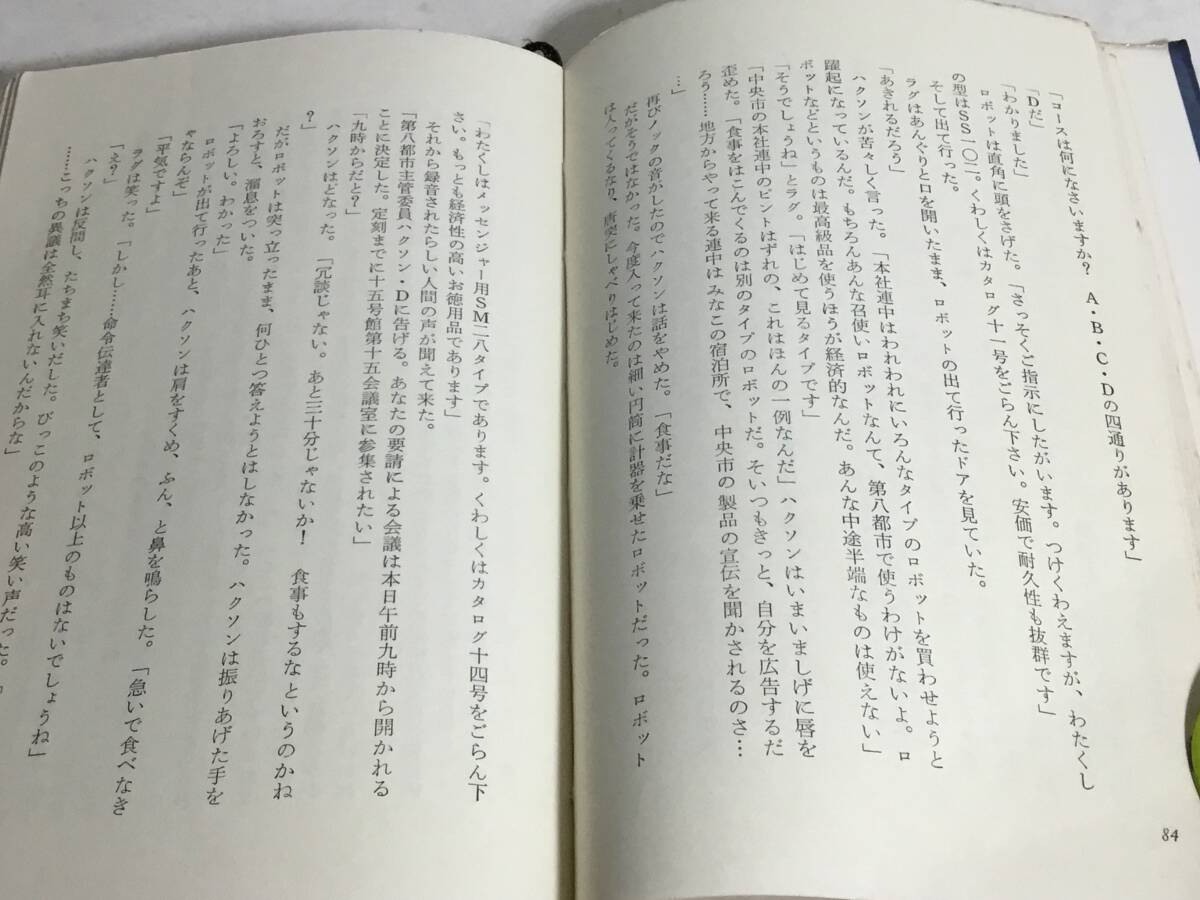 「コースは何になさいますか? A・B・C・Dの四通りがあります」
「Dだ」
「わかりました」
ロボットは直角に頭をさげた。「さっそくご指示にしたがいます。つけくわえますが、わたくし
の型はSS一〇二。くわしくはカタログ十一号をごらん下さい。安価で耐久性も抜群です」
そして出て行った。
ラグはあんぐりと口を開いたまま、ロボットの出て行ったドアを見ていた。
「あきれるだろう」
ハクソンが苦々しく言った。「本社連中はわれわれにいろんなタイプのロボットを買わせようと
躍起になっているんだ。もちろんあんな召使いロボットなんて、第八都市で使うわけがないよ。ロ
ボットなどというものは最高級品を使うほうが経済的なんだ。あんな中途半端なものは使えない」
「そうでしょうね」とラグ。「はじめて見るタイプです」
「中央市の本社連中のピントはずれの、これはほんの一例なんだ」ハクソンはいまいましげに唇を
歪めた。「食事をはこんでくるのは別のタイプのロボットだ。そいつもきっと、自分を広告するだ
ろう……地方からやって来る連中はみなこの宿泊所で、中央市の製品の宣伝を聞かされるのさ…
…」
再びノックの音がしたのでハクソンは話をやめた。「食事だな」
だがそうではなかった。今度入って来たのは細い円筒に計器を乗せたロボットだった。ロボット
は入ってくるなり、唐突にしゃべりはじめた。
84
「わたくしはメッセンジャー用SM二八タイプであります。くわしくはカタログ十四号をごらん下
さい。もっとも経済性の高いお徳用品であります」
それから録音されたらしい人間の声が聞えて来た。
「第八都市主管委員ハクソン・Dに告げる。あなたの要請による会議は本日午前九時から開かれる
ことに決定した。定刻までに十五号館第十五会議室に参集されたい」
「九時からだと?」
ハクソンはどなった。「冗談じゃない。あと三十分じゃないか! 食事もするなというのかね
?」
だがロボットは突っ立ったまま、何ひとつ答えようとはしなかった。ハクソンは振りあげた手を
おろすと、溜息をついた。
「よろしい。わかった」
ロボットが出て行ったあと、ハクソンは肩をすくめ、ふん、と鼻を鳴らした。「急いで食べなき
ゃならんぞ」
「平気ですよ」
ラグは笑った。「しかし……命令伝達者として、ロボット以上のものはないでしょうね」
「え?」
ハクソンは反問し、たちまち笑いだした。びっこのような高い笑い声だった。「
……こっちの異議は全然耳に入れないんだからな」